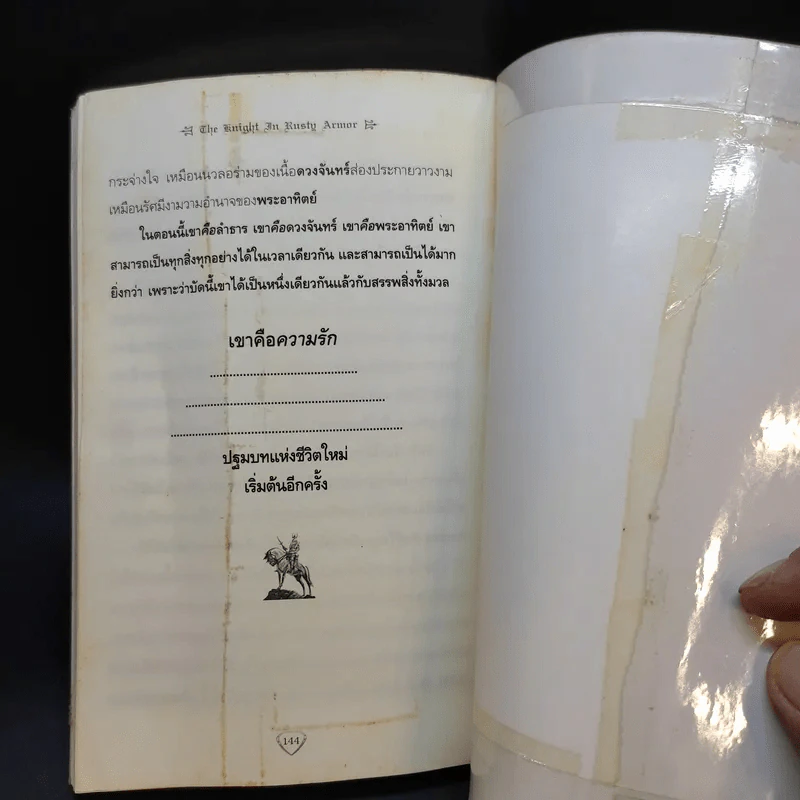 The Knight In Rusty Armor
กระจ่างใจ เหมือนนวลอร่ามของเนื้อดวงจันทร์ส่องประกายวาวงาม
เหมือนรัศมีงามวามอำนาจของพระอาทิตย์
ในตอนนี้เขาคือลำธาร เขาคือดวงจันทร์ เขาคือพระอาทิตย์ เขา
สามารถเป็นทุกสิ่งทุกอย่างได้ในเวลาเดียวกัน และสามารถเป็นได้มาก
ยิ่งกว่า เพราะว่าบัดนี้เขาได้เป็นหนึ่งเดียวกันแล้วกับสรรพสิ่งทั้งมวล
เขาคือความรัก
ปฐมบทแห่งชีวิตใหม่
เริ่มต้นอีกครั้ง
144